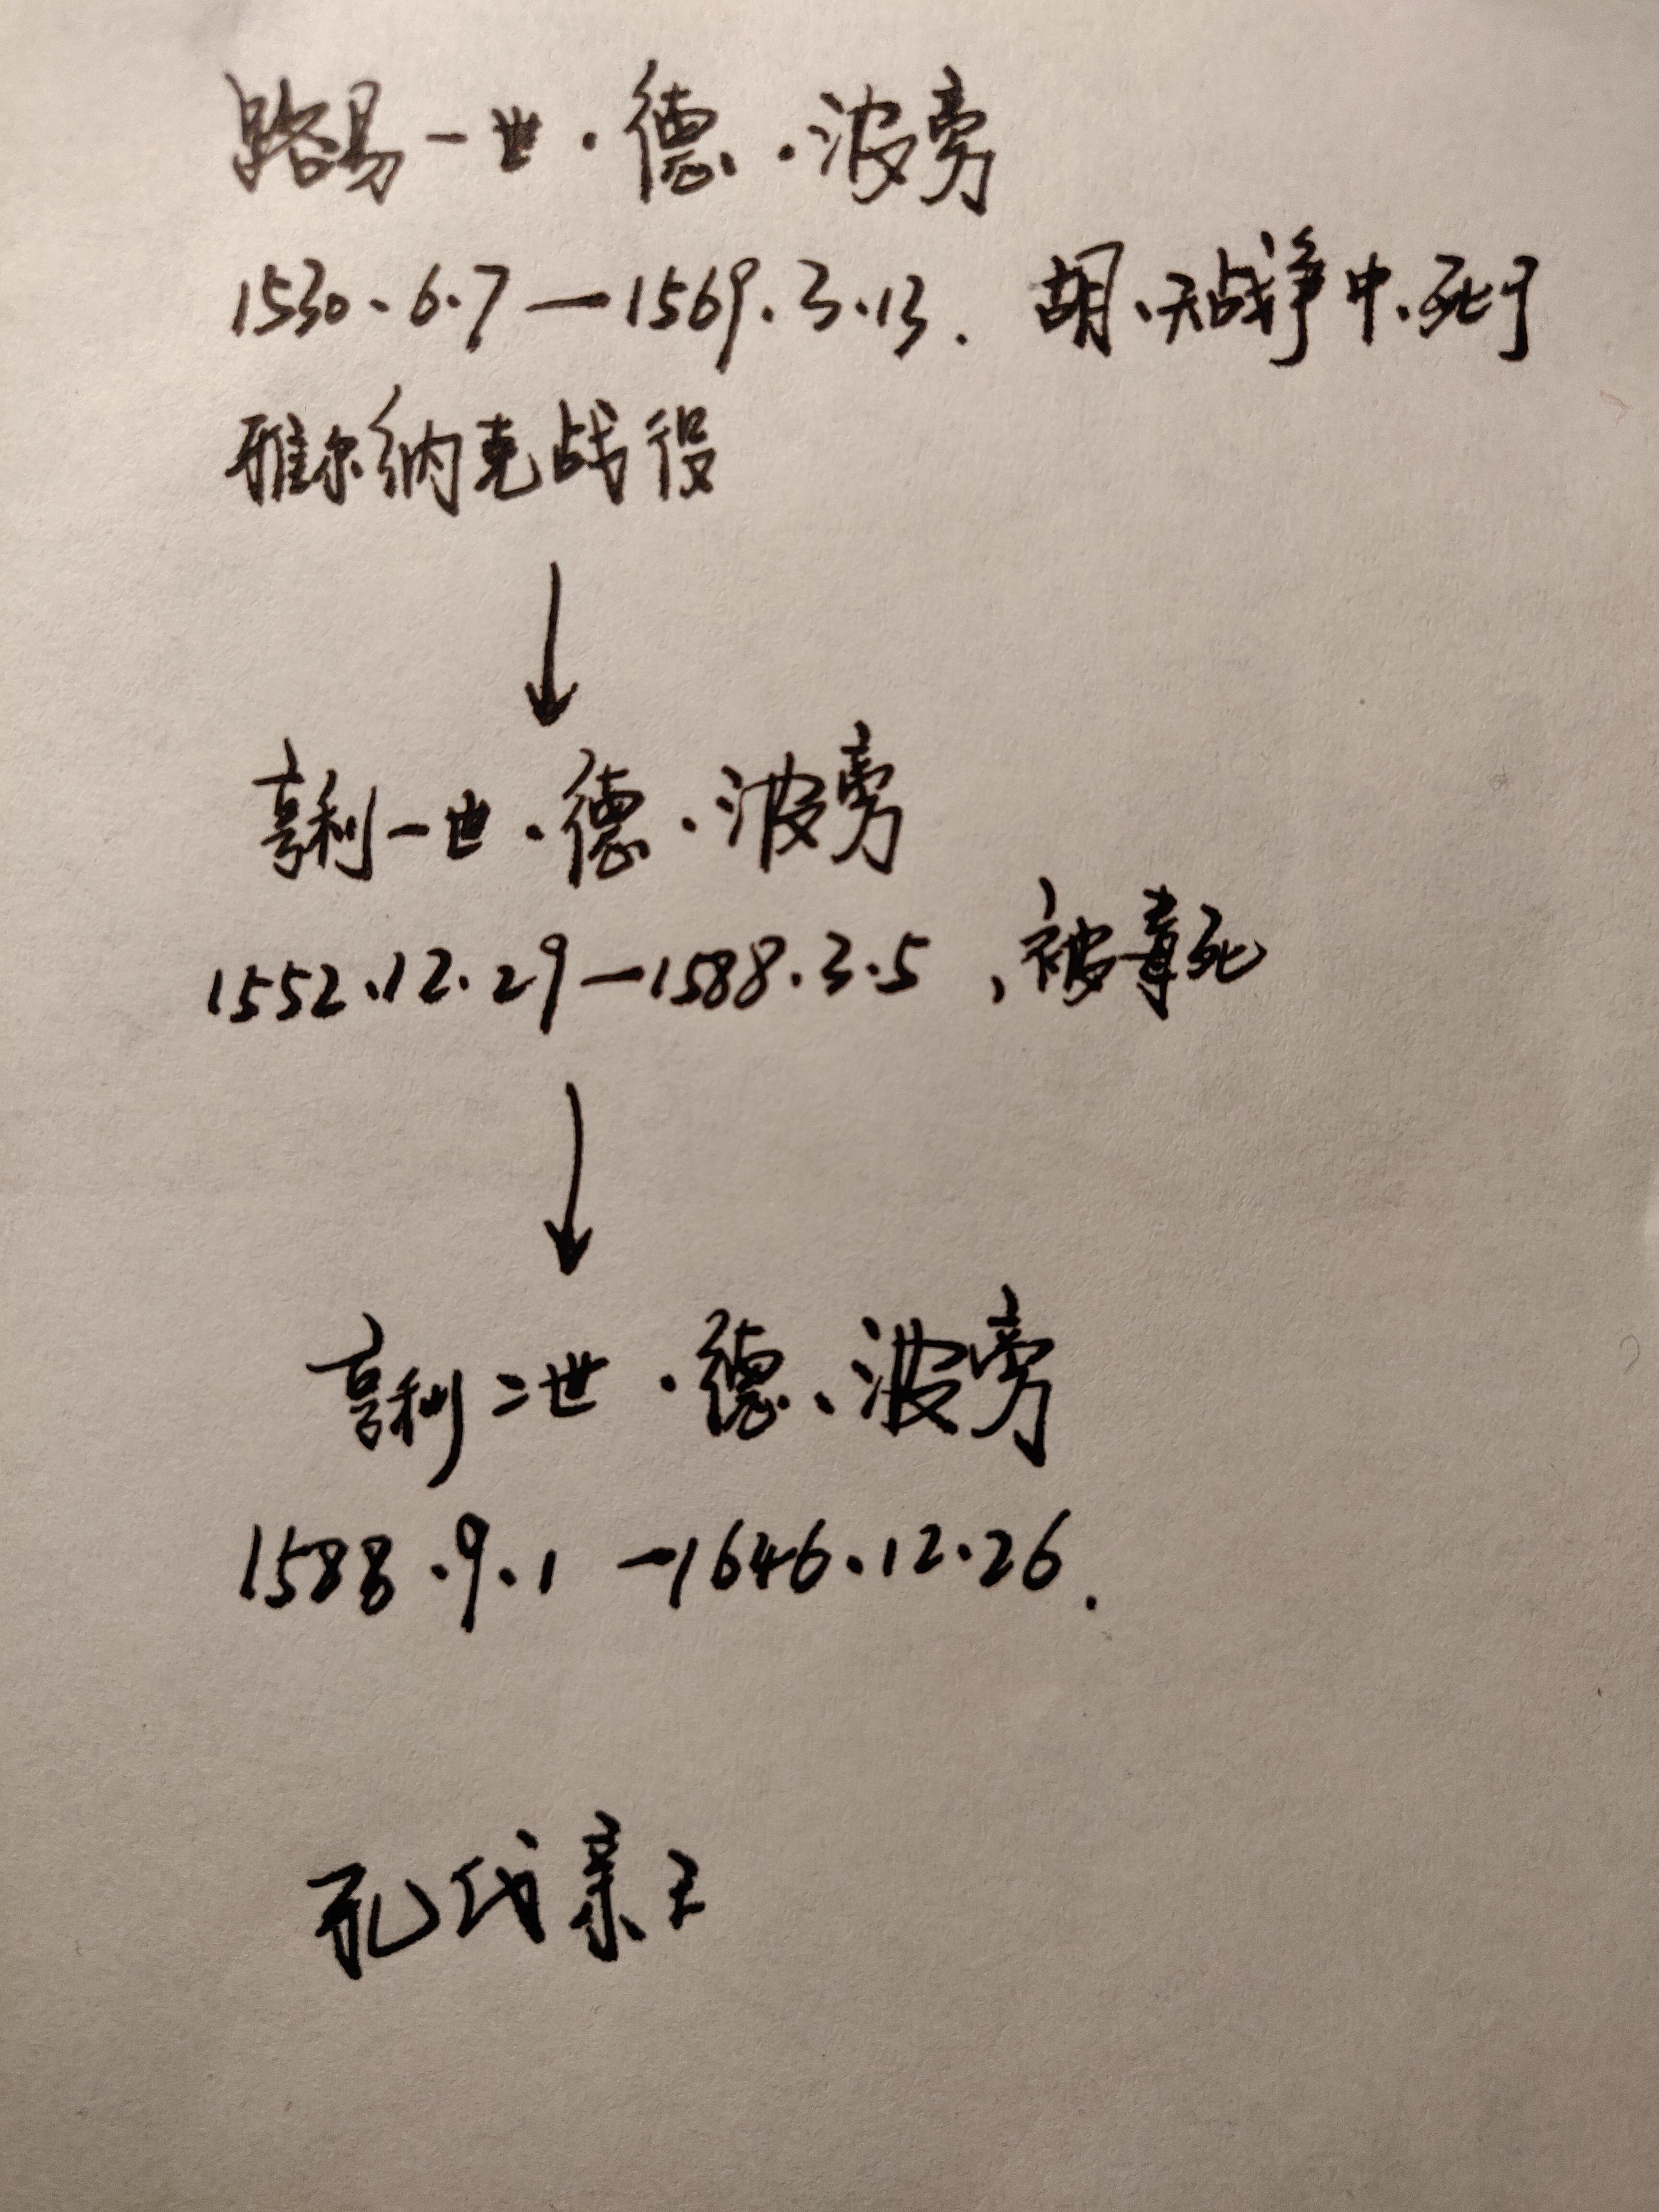 路易一世·德·波旁
1530.6.7—1569.3.13. 胡、天战争中、死于
雅尔纳克战役
亨利一世·德·波旁
1552.12.29—1588.3.5,被毒死
亨利二世·德·波旁
1588.9.1—1646.12.26.
孔代亲王